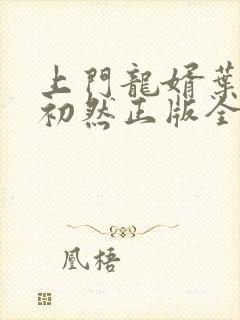 上門龍婿葉
初然正版全
凰梧